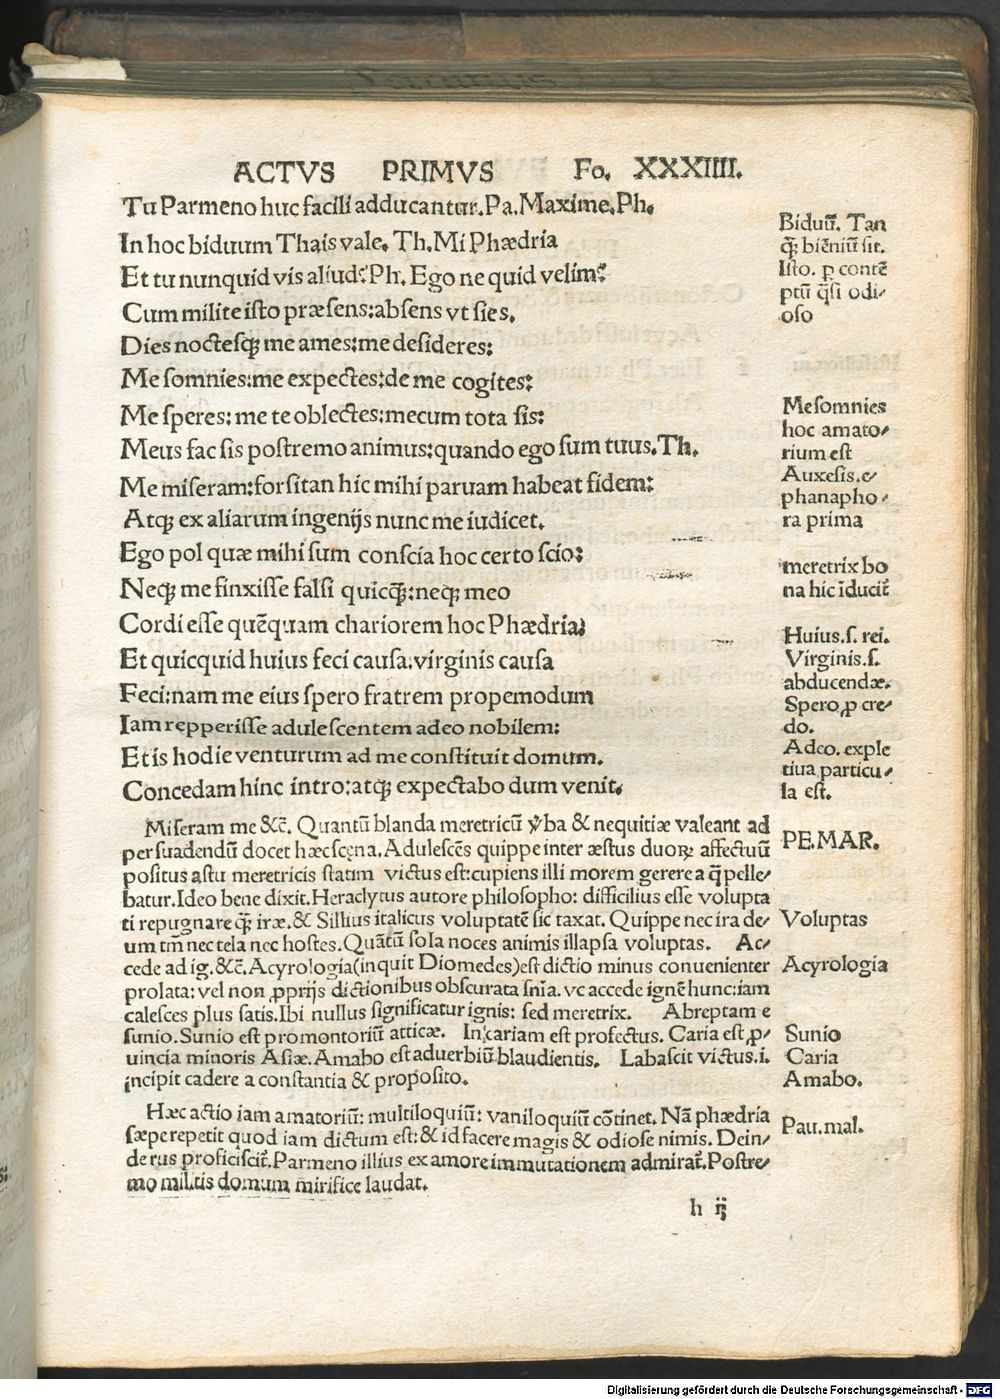 ACTVS PRIMVS Fo. XXXIIII.
Tu Parmeno huc facili adducantur. Pa. Maxime. Ph.
In hoc biduum Thais vale. Th. Mi Phædria
Et tu nunquid vis aliud? Ph. Ego ne quid velim?
Cum milite iſto præſens: abſens vt ſies.
Dies noctesq̃ me ames: me deſideres:
Me ſomnies: me expectes: de me cogites:
Me ſperes: me te oblectes: mecum tota ſis:
Meus fac ſis poſtremo animus: quando ego ſum tuus. Th.
Me miſeram: forſitan hic mihi paruam habeat fidem:
Atq; ex aliarum ingenijs nunc me iudicet.
Ego pol quæ mihi ſum conſcia hoc certo ſcio:
Neq; me finxiſſe falſi quicq̃: neq; meo
Cordi eſſe quēquam chariorem hoc Phædria:
Et quicquid huius feci cauſa. virginis cauſa
Feci: nam me eius ſpero fratrem propemodum
Iam repperiſſe aduleſcentem adeo nobilem:
Et is hodie venturum ad me conſtituit domum.
Concedam hinc intro: atq; expectabo dum venit.
Biduū. Tan
q̃ biēniū ſit.
Iſto. ꝑ contē
ptū q̃ſi odi⸗
oſo
Me ſomnies
hoc amato⸗
rium eſt
Auxeſis. &
phanapho⸗
ra prima
meretrix bo
na hic īducit̄
Huius. ſ. rei.
Virginis. ſ.
abducendæ.
Spero, ꝓ cre
do.
Adeo. exple
tiua particu⸗
la eſt.
Miſeram me &c̄. Quantū blanda meretricū v̄ba & nequitiæ valeant ad
perſuadendū docet hæc ſcęna. Aduleſcēs quippe inter æſtus duoꝝ affectuū
poſitus aſtu meretricis ſtatim victus eſt: cupiens illi morem gerere a q̃ pelle⸗
batur. Ideo bene dixit. Heraclytus autore philoſopho: difficilius eſſe volupta
ti repugnare q̃ iræ. & Sillius italicus voluptatē ſic taxat. Quippe nec ira de⸗
um tm̄ nec tela nec hoſtes. Quātū ſola noces animis illapſa voluptas. Ac⸗
cede ad ig. &c̄. Acyrologia (inquit Diomedes) eſt dictio minus conuenienter
prolata: vel non ꝓprijs dictionibus obſcurata ſnīa. vt accede ignē hunc: iam
caleſces plus ſatis. Ibi nullus ſignificatur ignis: ſed meretrix. Abreptam e
ſunio. Sunio eſt promontoriū atticæ. In cariam eſt profectus. Caria eſt ꝓ⸗
uincia minoris Aſiæ. Amabo eſt aduerbiū blaudientis. Labaſcit victus. i.
incipit cadere a conſtantia & propoſito.
PE. MAR.
Voluptas
Acyrologia
Sunio
Caria
Amabo.
Hæc actio iam amatoriū: multiloquiū: vaniloquiū cōtinet. Nā phædria
ſæpe repetit quod iam dictum eſt: & id facere magis & odioſe nimis. Dein⸗
de rus proficiſcit̄. Parmeno illius ex amore immutationem admirat̄. Poſtre⸗
mo militis domum mirifice laudat.
Pau. mal.
h ij
Digitalisierung gefördert durch die Deutsche Forschungsgemeinschaft - DFG